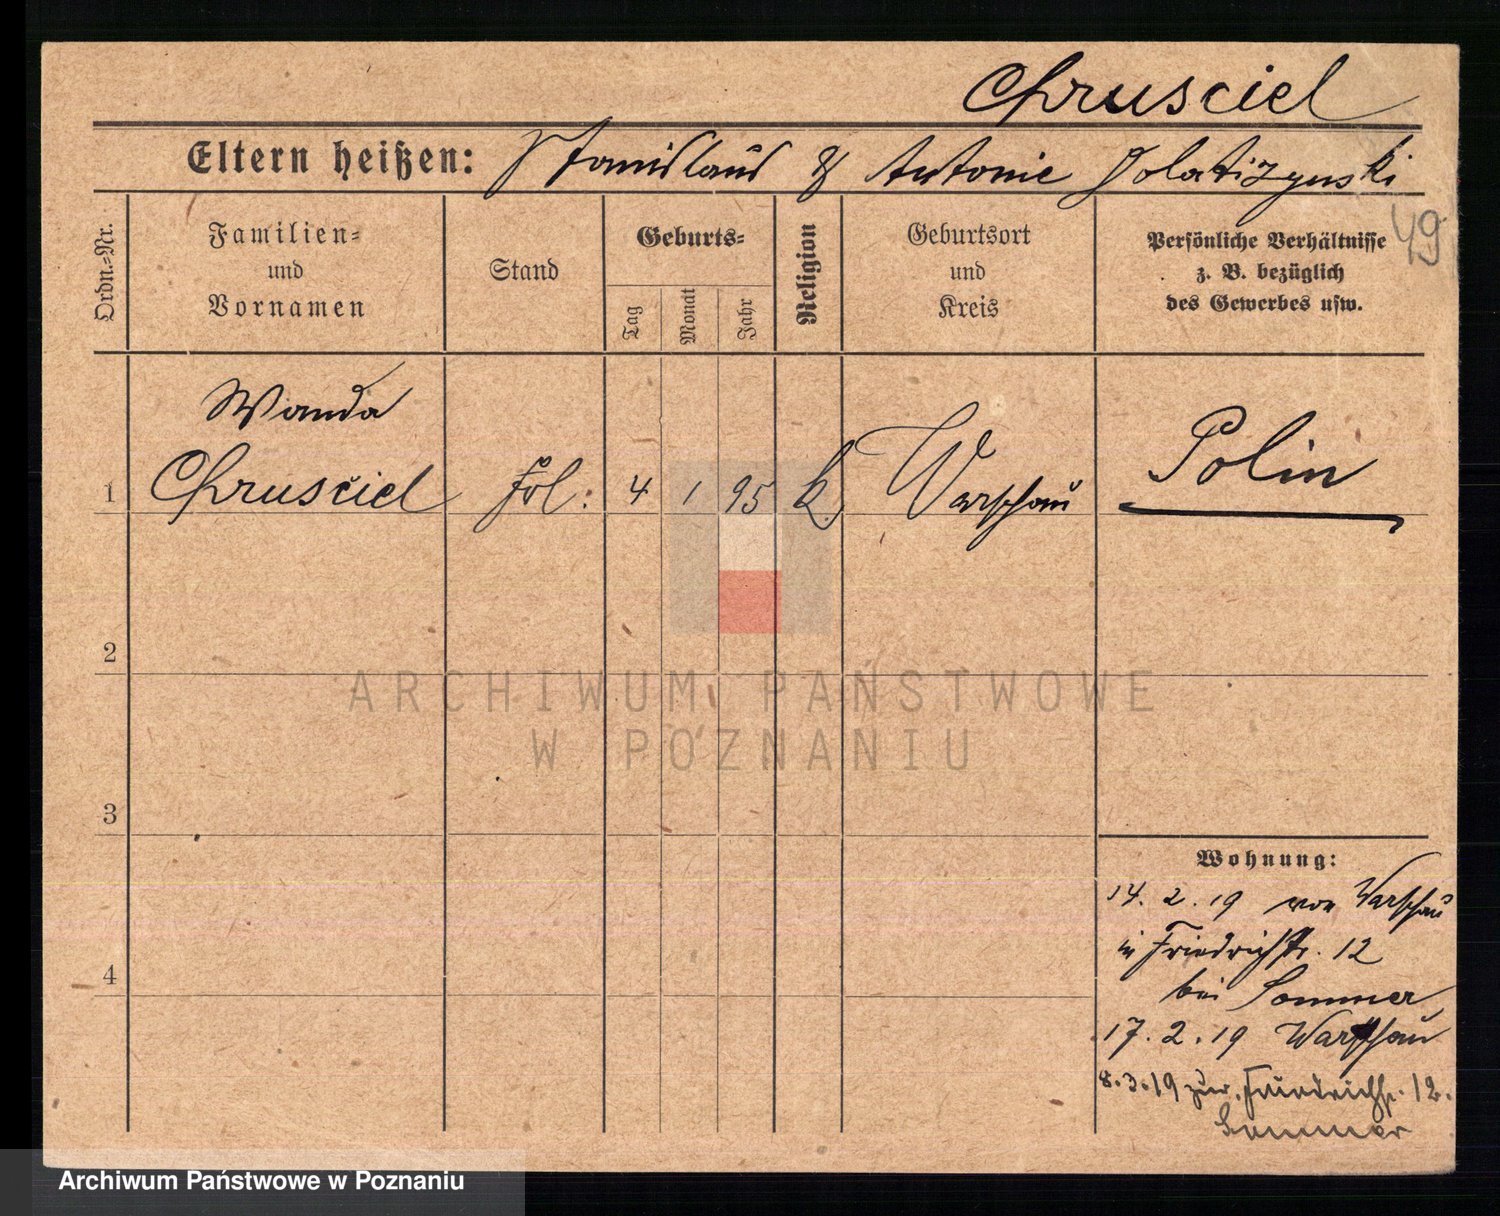 Chrusciel
Eltern heißen: Stanislaus & Antonie
49
Ordn.-Nr.
Familien-
und
Vornamen
Stand
Geburts-
Tag
Monat
Jahr
Religion
Geburtsort
und
Kreis
Persönliche Verhältnisse
z. B. bezüglich
des Gewerbes usw.
Wanda
1 Chrusciel Frl: 4 1 95 k. Warschau Polin
2
3
4
ARCHIWUM PAŃSTWOWE
W POZNANIU
Wohnung:
14. 2. 19 von Warschau
in Friedrichstr. 12
bei Sommer
17. 2. 19 Warschau
8. 3. 19 zur. Friedrichstr. 12.
Sommer
Archiwum Państwowe w Poznaniu